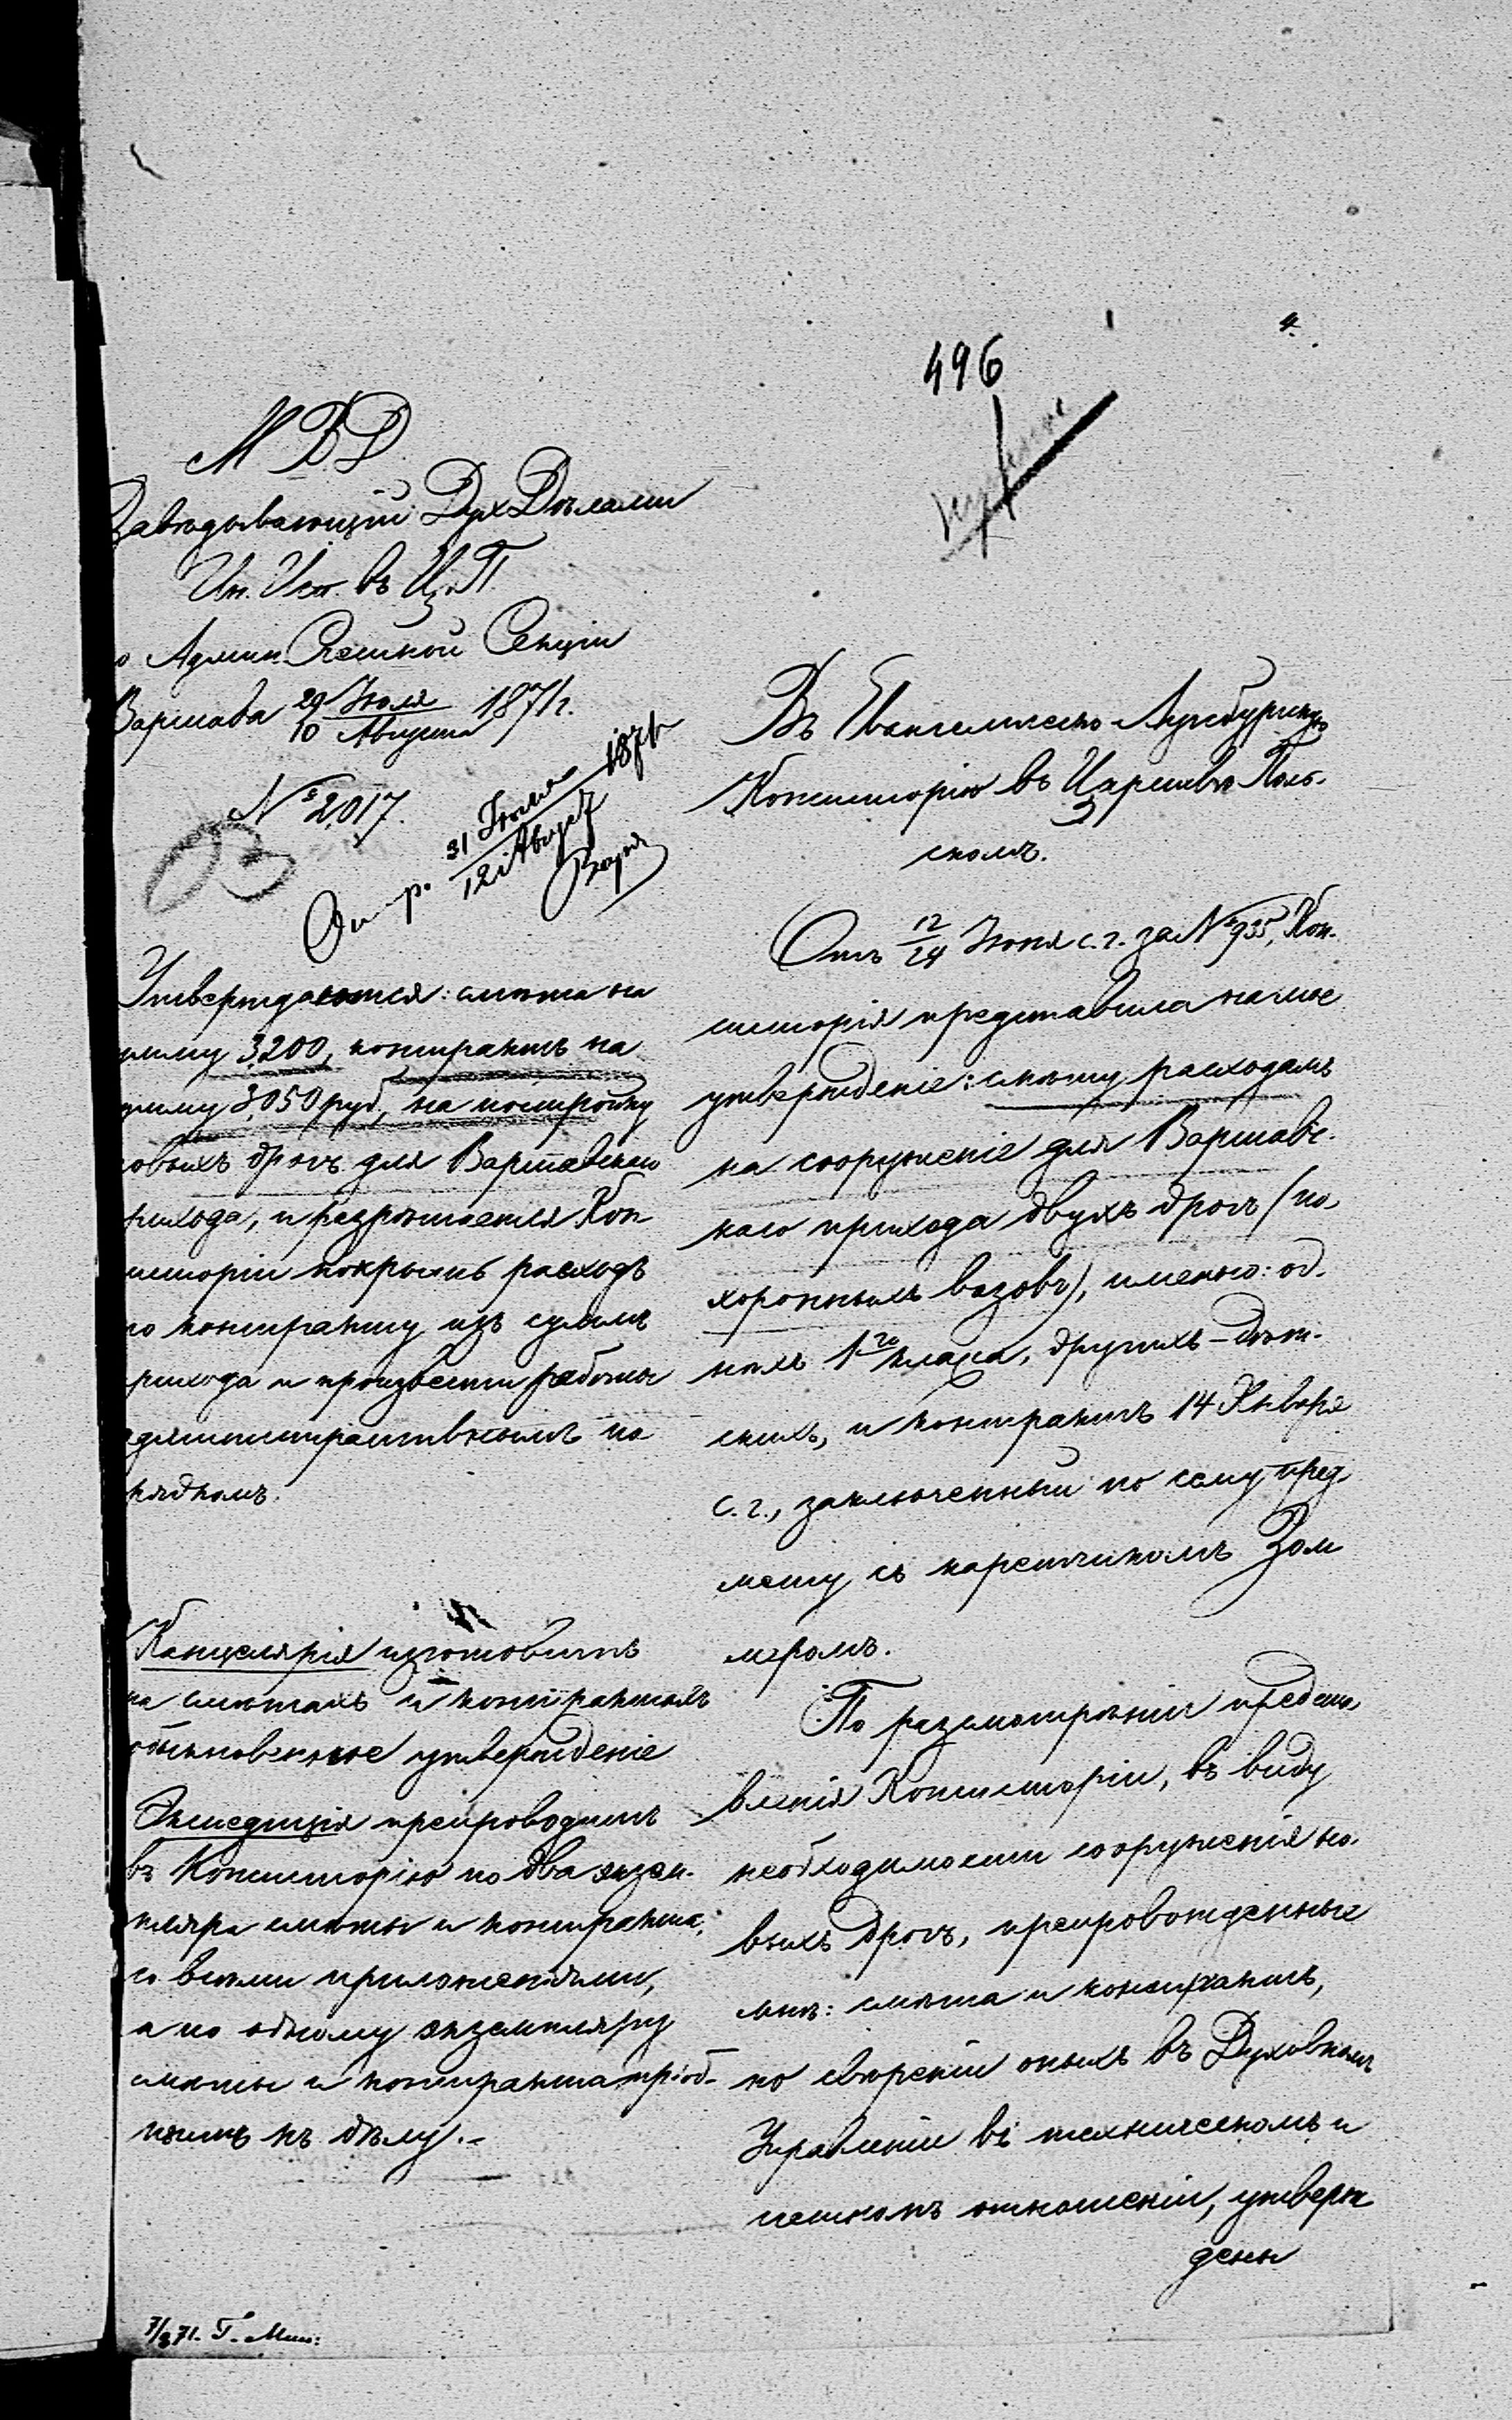 4.
496
МВД
Завѣдывающій Дух Дѣлами
Ин. Исп. въ Ц. П.
о Админ. Счетной Секціи
Варшава 29 Іюля / 10 Августа 1871 г.
№ 2017.
Отпр. 31 Іюля / 12 Август 1871
Утверждаются: смѣта на
сумму 3200, контрактъ на
сумму 3050 руб, на постройку
новыхъ дрогъ для Варшавскаго
прихода, и разрѣшается Кон
систоріи покрыть расходъ
по контракту изъ суммъ
прихода и произвести работы
административнымъ по
рядкомъ.
Канцелярія изготовитъ
на смѣтахъ и контрактахъ
обыкновенное утвержденіе
Экспедиція препроводитъ
въ Консисторію по два экзем-
пляра смѣты и контракта,
со всѣми приложеніями,
а по одному экземпляру
смѣты и контракта пріоб-
щитъ къ дѣлу.-
7/8 71.
Въ Евангелическо-Лютебургскую
Консисторію въ Царствѣ Поль-
скомъ.
Отъ 12/24 Іюня с. г. за № 935, Кон-
систорія представила на мое
утвержденіе: смѣту расходамъ
на сооруженіе для Варшавс-
каго прихода двухъ дрогъ (по-
хоронныхъ возовъ), именно: од-
нихъ 1го класса, другихъ - дѣт-
скихъ, и контрактъ 14 Января
с. г., заключенный по сему пред-
мету съ каретникомъ Зом
меромъ.
По разсмотрѣніи предста-
вленія Консисторіи, въ виду
необходимости сооруженія но-
выхъ дрогъ, препровожденные
мнѣ: смѣта и контрактъ,
по свѣреніи оныхъ въ Духовномъ
Управленіи въ техническомъ и
счетномъ отношеніи, утверж
дены